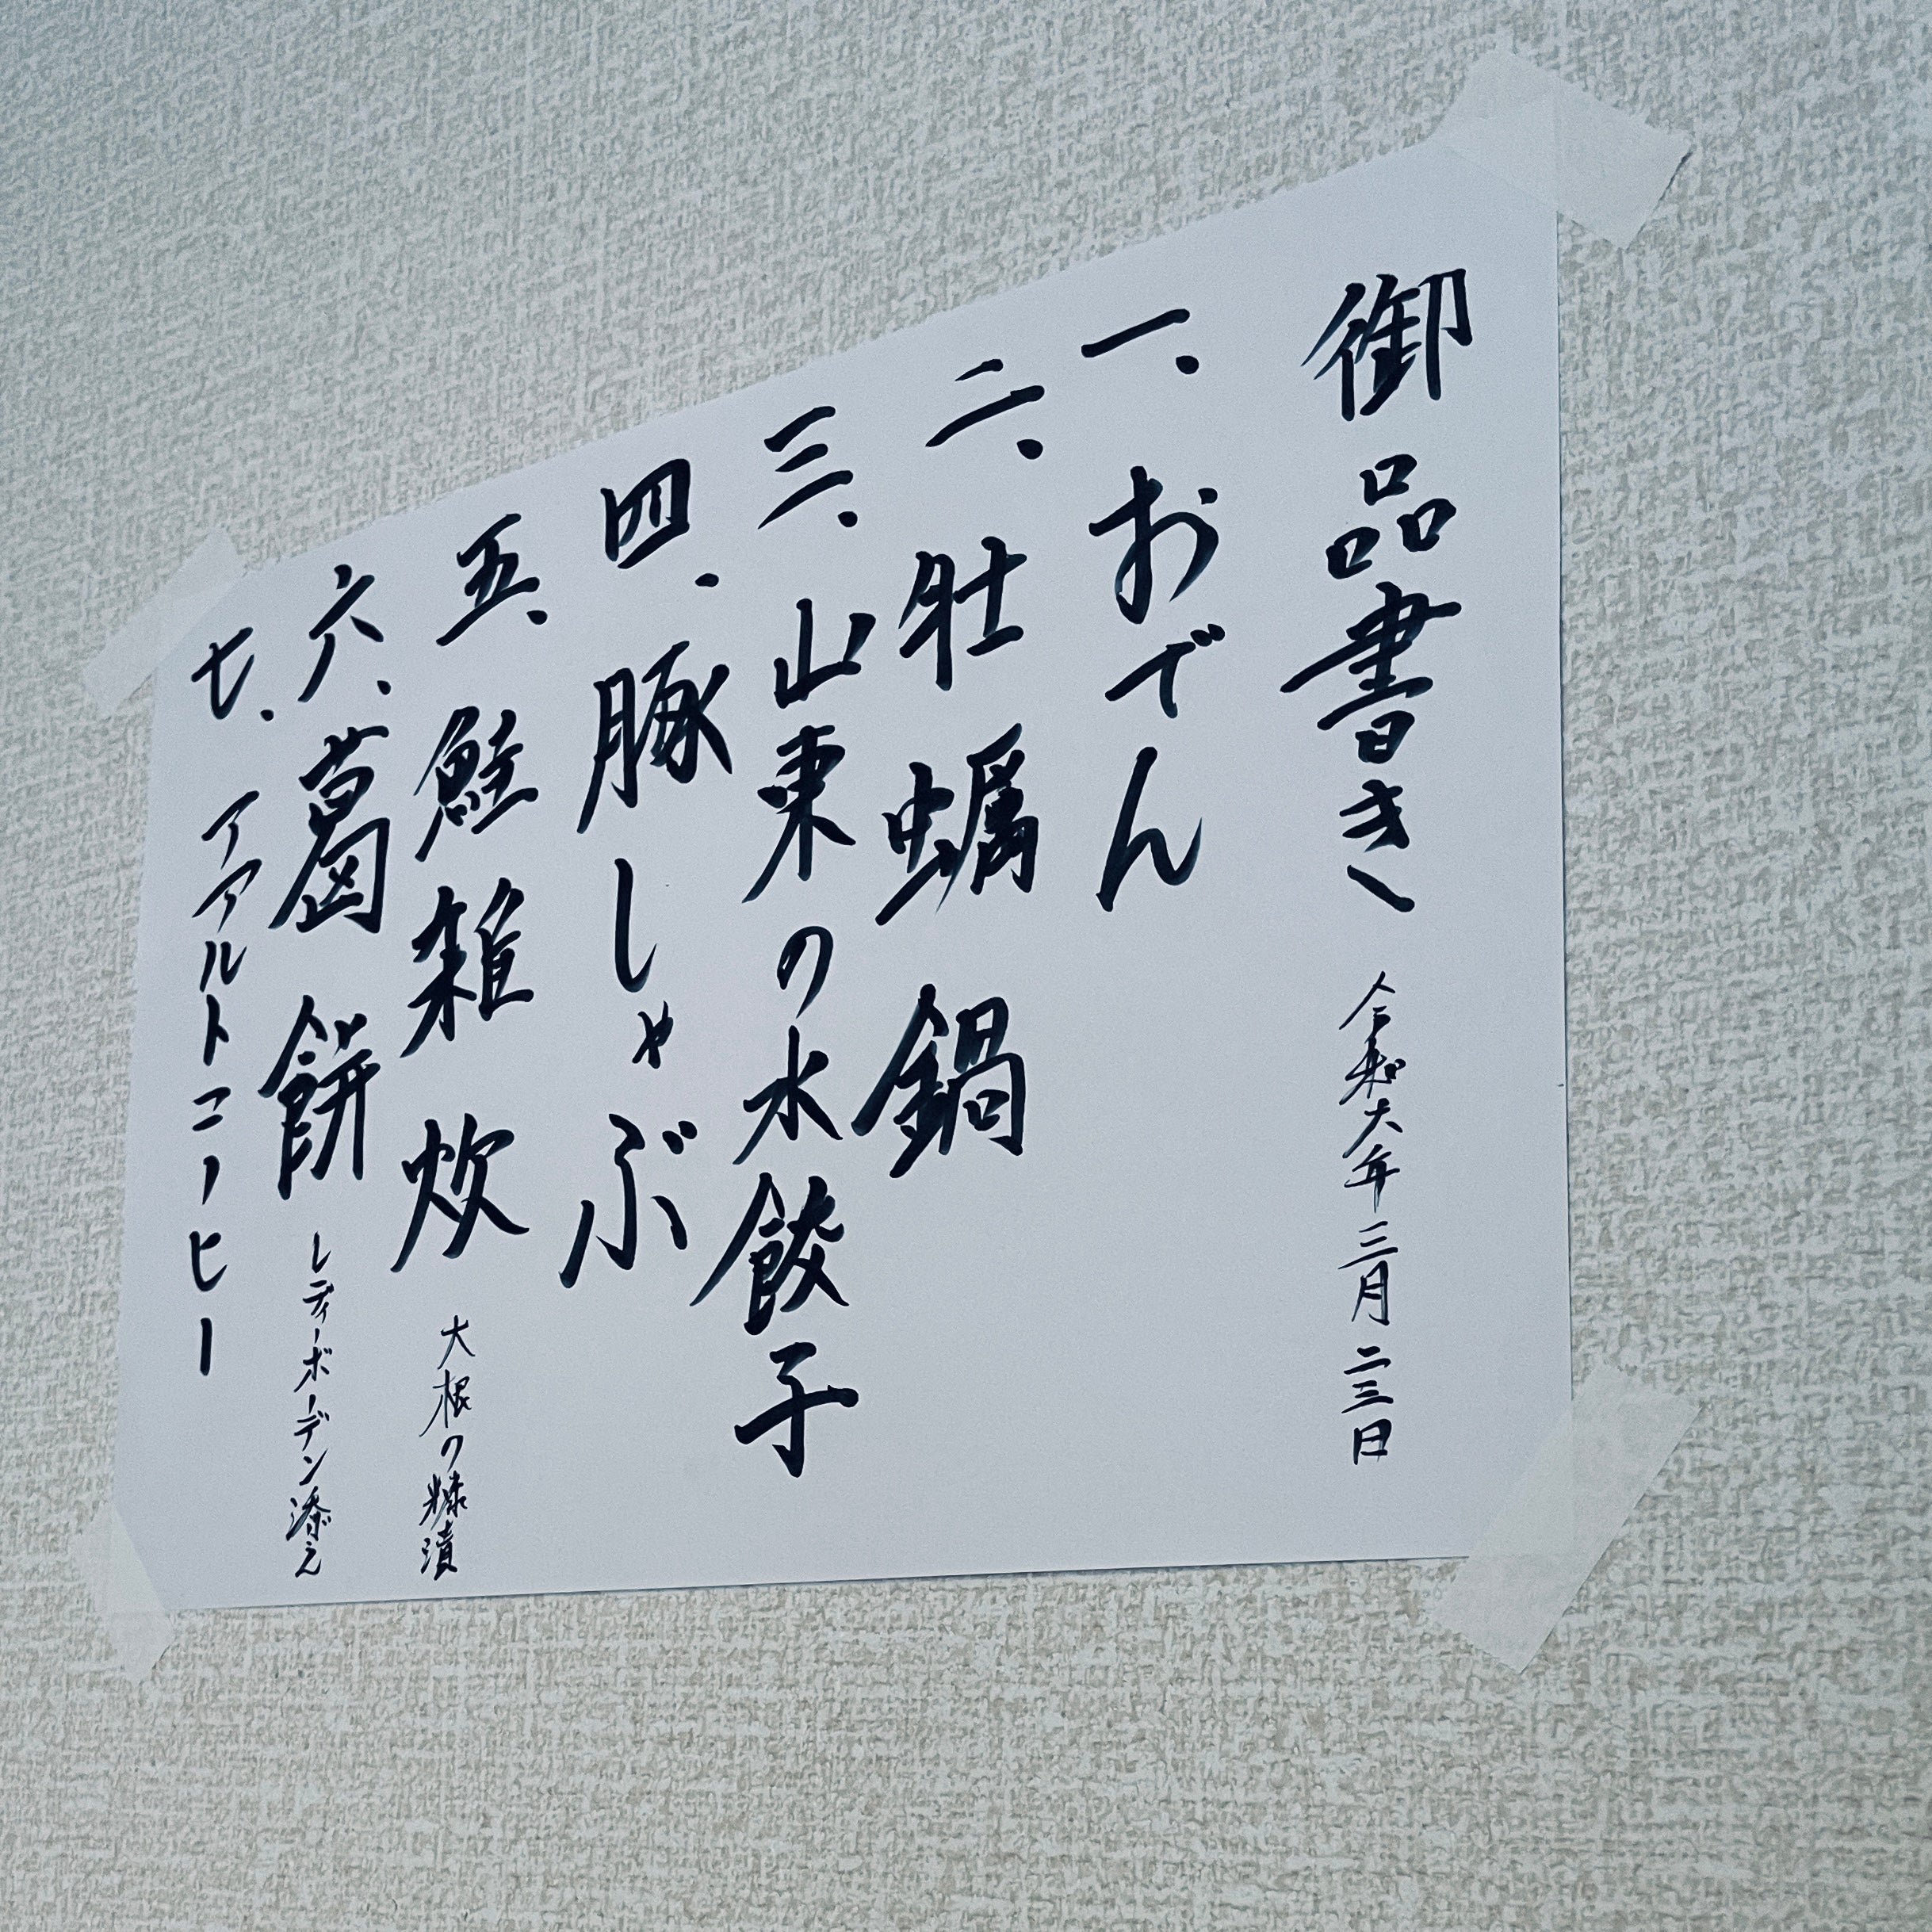 御品書き 令和六年三月二三日
一、おでん
二、牡蠣鍋
三、山東の水餃子
四、豚しゃぶ
五、鮭雑炊 大根の糠漬
六、葛餅 レディーボーデン添え
七、アアルトコーヒー